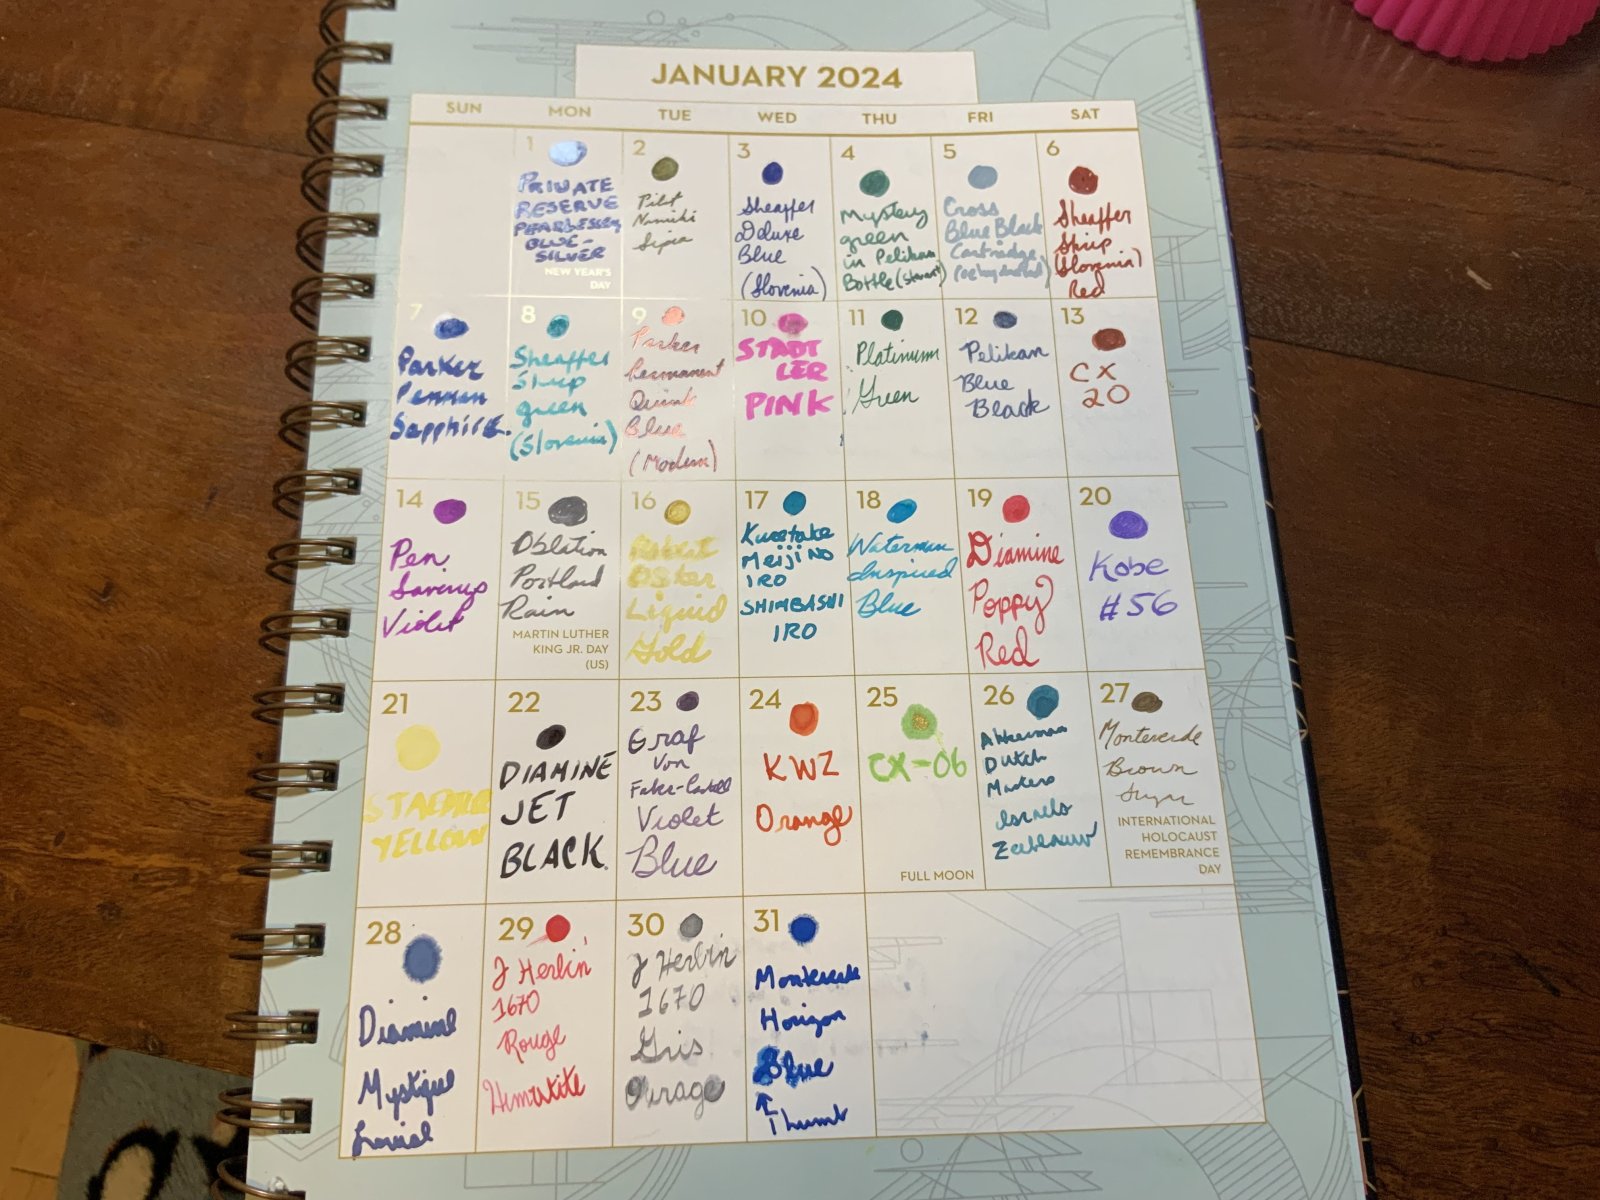 JANUARY 2024
SUN MON TUE WED THU FRI SAT
1
PRIVATE
RESERVE
BLUE-
SILVER
NEW YEAR'S
DAY
2
Pilot
Namiki
Sepia
3
Sheaffer
Deluxe
Blue
(Slovenia)
4
Mystery
green
in Pelikan
Bottle
5
Cross
Blue Black
Cartridge
6
Sheaffer
Skrip
(Slovenia)
Red
7
Parker
Penman
Sapphire.
8
Sheaffer
Skrip
green
(Slovenia)
9
Parker
Permanent
Quink
Blue
(Modern)
10
STADT
LER
PINK
11
Platinum
Green
12
Pelikan
Blue
Black
13
CX
20
14
Pen
Violet
15
Oblation
Portland
Rain
MARTIN LUTHER
KING JR. DAY
(US)
16
Robert
Oster
Liquid
Gold
17
Kuretake
Meiji NO
IRO
SHIMBASHI
IRO
18
Waterman
Inspired
Blue
19
Diamine
Poppy
Red
20
Kobe
#56
21
YELLOW
22
DIAMINE
JET
BLACK
23
Graf
Von
Faber-Castell
Violet
Blue
24
KWZ
Orange
25
CX-06
FULL MOON
26
Akkerman
Dutch
Masters
27
Monteverde
Brown
Sugar
INTERNATIONAL
HOLOCAUST
REMEMBRANCE
DAY
28
Diamine
Mystique
29
J Herbin
1670
Rouge
30
J Herbin
1670
Gris
Orage
31
Monteverde
Horizon
Blue
↑
Thumb